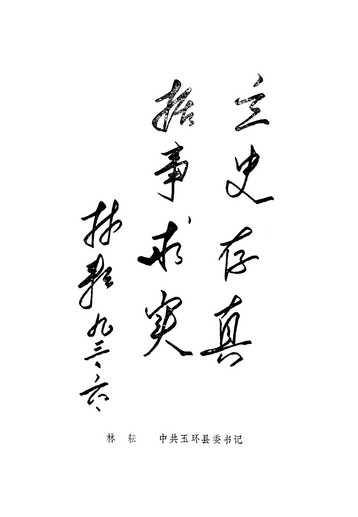 立史存真
括事求实
林耘
九三、六、
林 耘 中共玉环县委书记